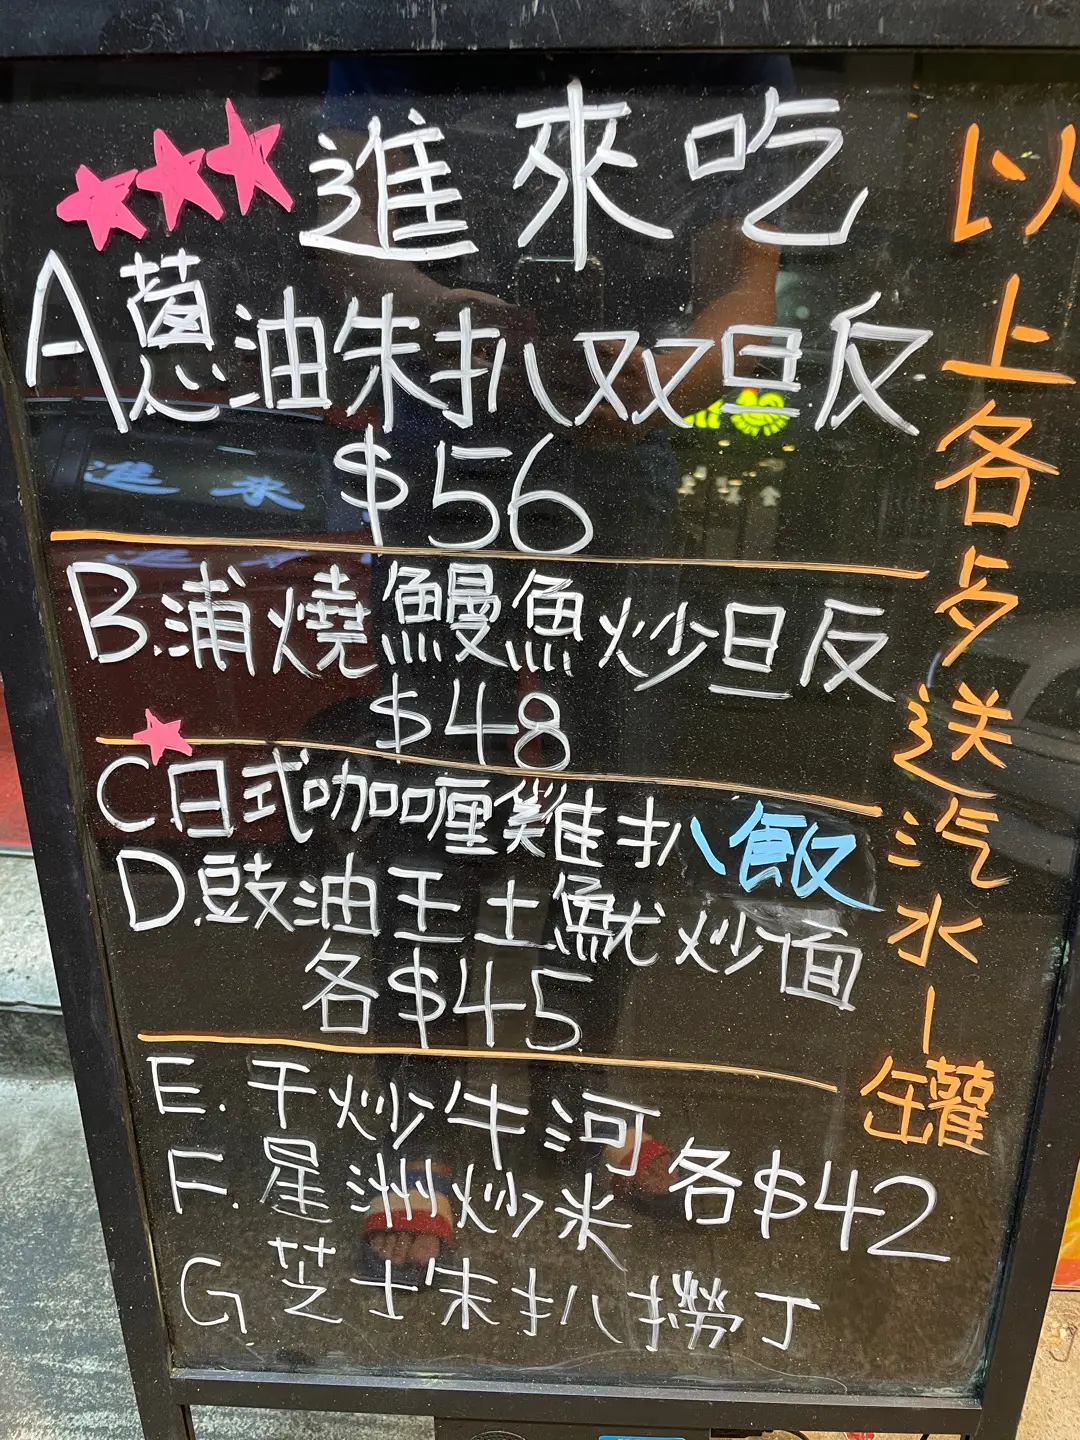 進來吃
A蔥油朱扒双旦反
$56
B.浦燒鰻魚炒旦反
$48
C日式咖喱雞扒飯
D.豉油王士魷炒面
各$45
E.干炒牛河
F.星洲炒米 各$42
G.芝士朱扒撈丁
以上各歺送汽水一罐
進來